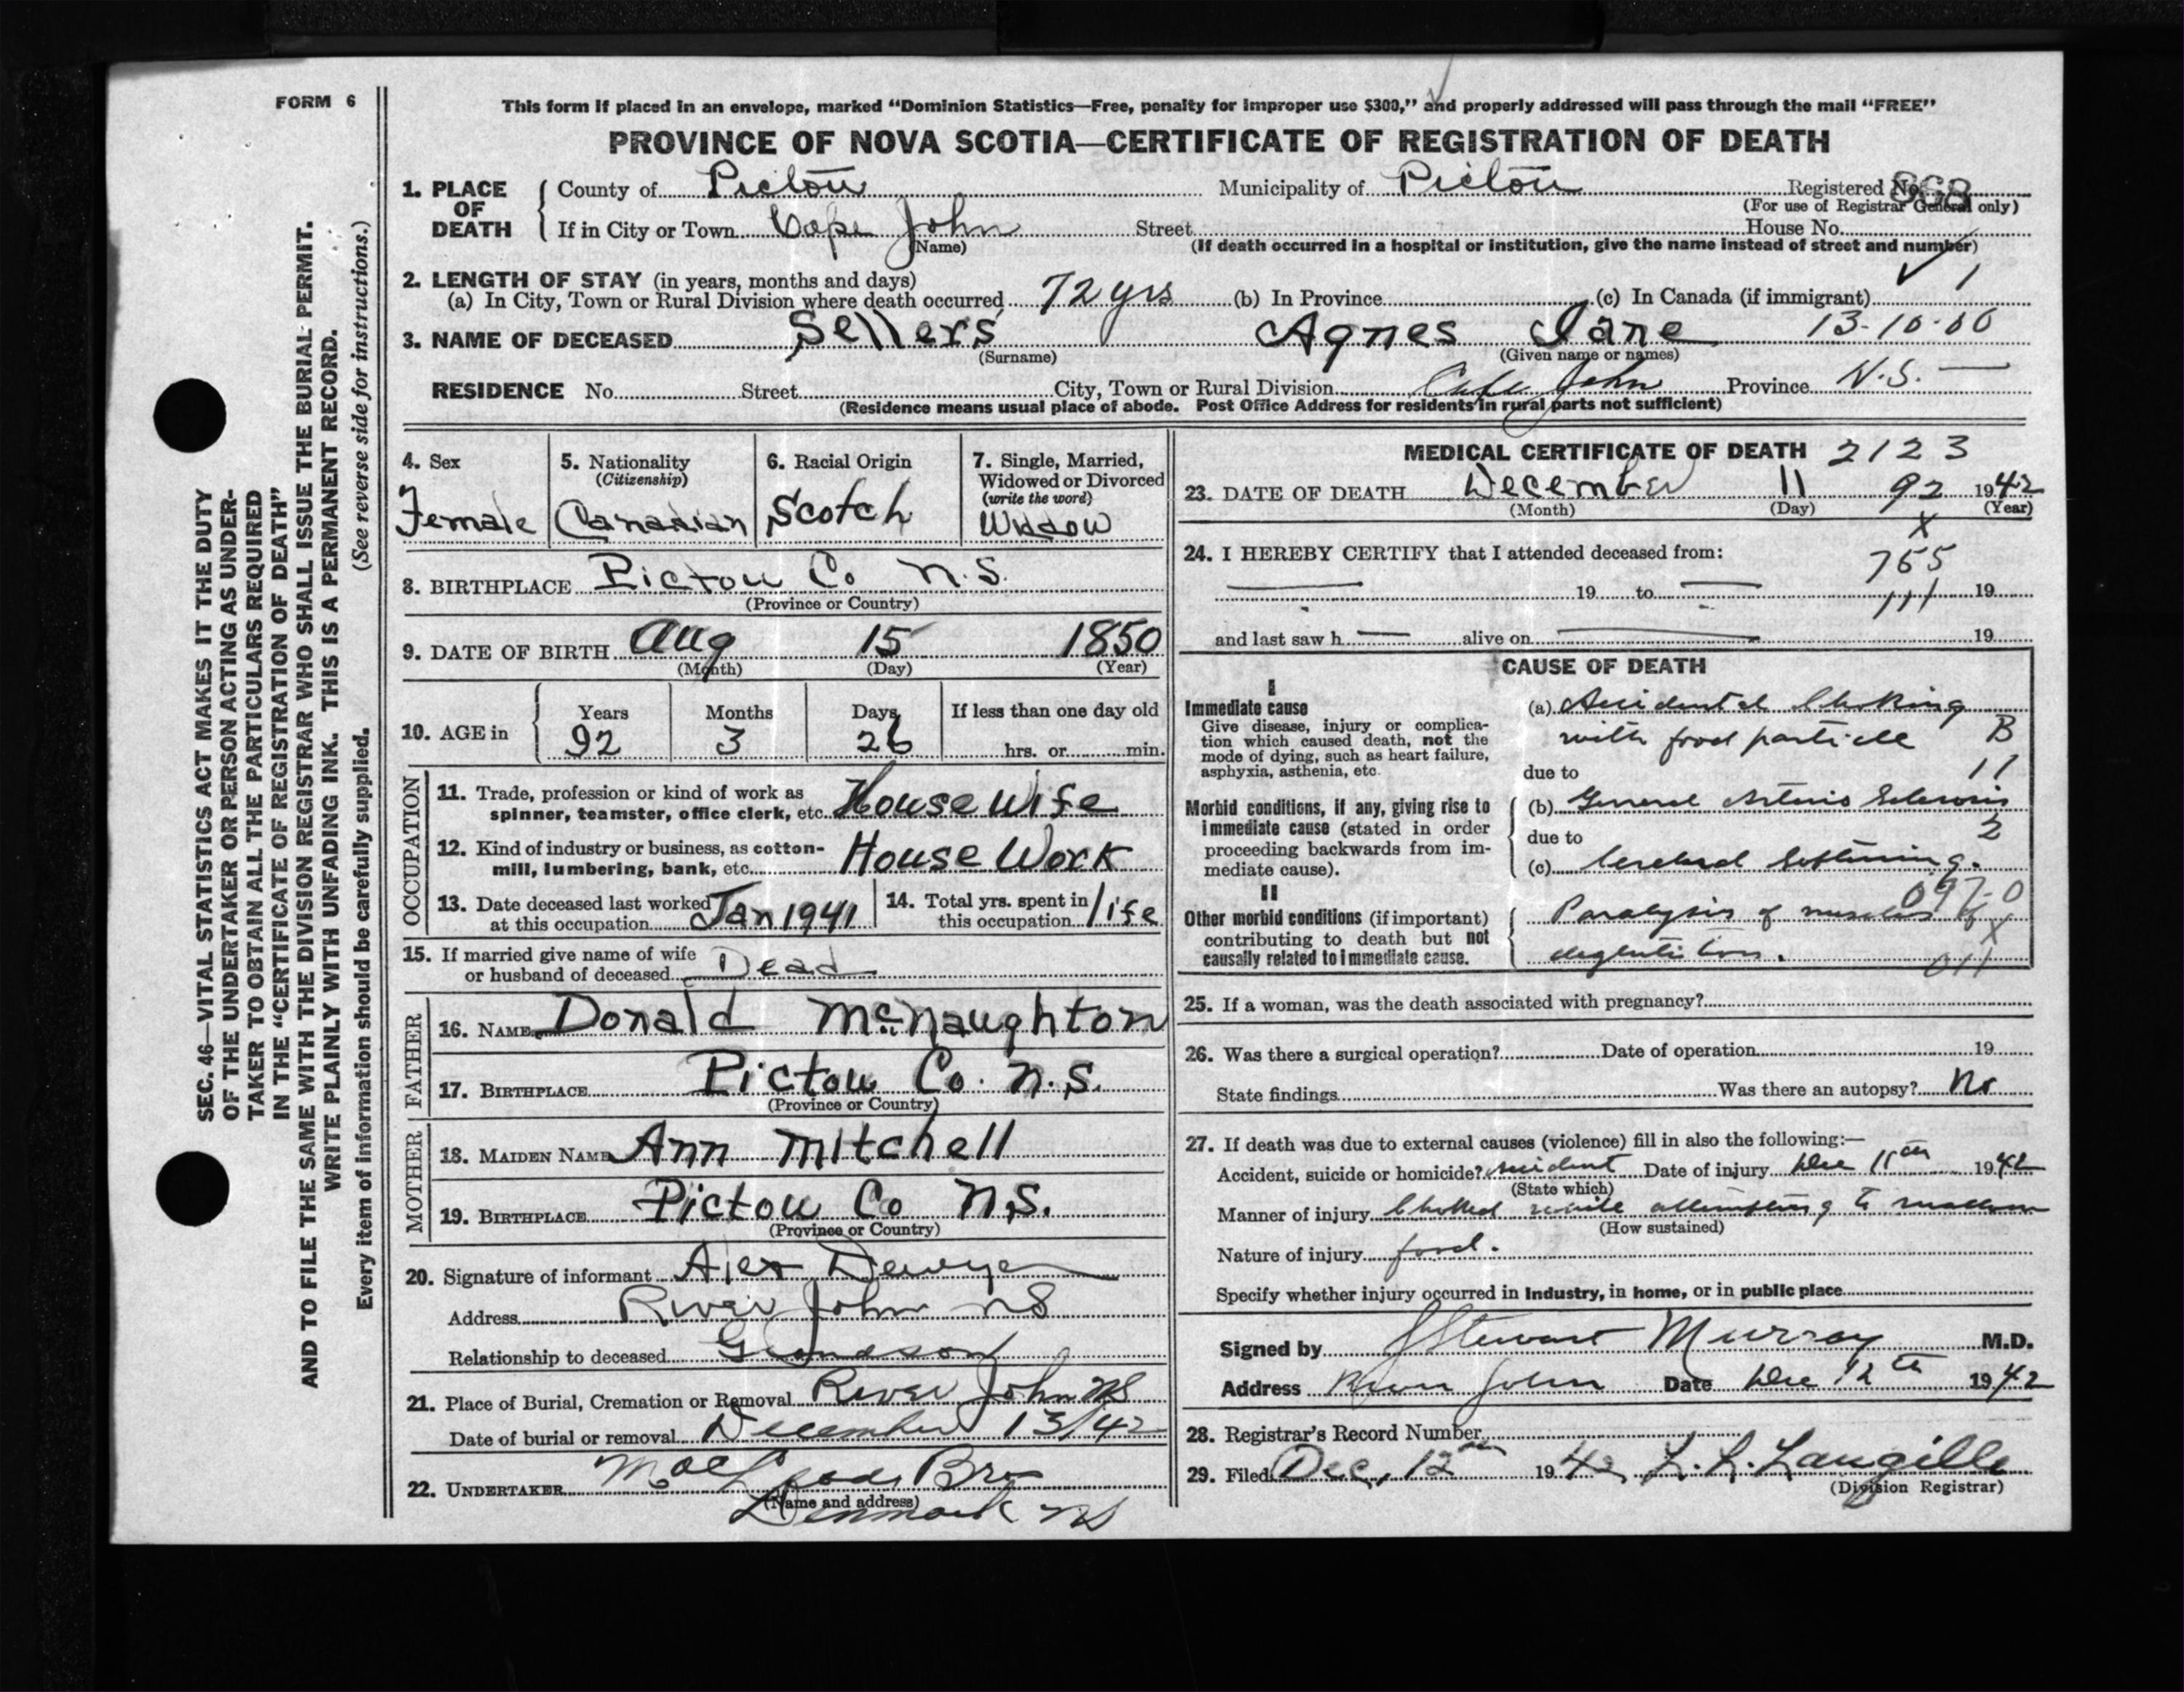 FORM 6
SEC. 46—VITAL STATISTICS ACT MAKES IT THE DUTY
OF THE UNDERTAKER OR PERSON ACTING AS UNDER-
TAKER TO OBTAIN ALL THE PARTICULARS REQUIRED
IN THE "CERTIFICATE OF REGISTRATION OF DEATH"
AND TO FILE THE SAME WITH THE DIVISION REGISTRAR WHO SHALL ISSUE THE BURIAL PERMIT.
WRITE PLAINLY WITH UNFADING INK. THIS IS A PERMANENT RECORD.
Every item of information should be carefully supplied. (See reverse side for instructions.)
This form if placed in an envelope, marked "Dominion Statistics—Free, penalty for improper use $300," and properly addressed will pass through the mail "FREE"
PROVINCE OF NOVA SCOTIA—CERTIFICATE OF REGISTRATION OF DEATH
1. PLACE OF DEATH County of Pictou Municipality of Pictou Registered No. 868
(For use of Registrar General only)
If in City or Town Cape John Street House No.
(Name) (If death occurred in a hospital or institution, give the name instead of street and number)
2. LENGTH OF STAY (in years, months and days)
(a) In City, Town or Rural Division where death occurred 72 yrs (b) In Province (c) In Canada (if immigrant) 1
3. NAME OF DECEASED Sellers Agnes Jane
(Surname) (Given name or names)
RESIDENCE No. Street City, Town or Rural Division Cape John Province N.S.
(Residence means usual place of abode. Post Office Address for residents in rural parts not sufficient)
4. Sex
Female
5. Nationality
(Citizenship)
Canadian
6. Racial Origin
Scotch
7. Single, Married,
Widowed or Divorced
(write the word)
Widow
8. BIRTHPLACE Pictou Co N.S.
(Province or Country)
9. DATE OF BIRTH Aug 15 1850
(Month) (Day) (Year)
10. AGE in
Years Months Days If less than one day old
92 3 26 hrs. or min.
OCCUPATION
11. Trade, profession or kind of work as
spinner, teamster, office clerk, etc. House wife
12. Kind of industry or business, as cotton-
mill, lumbering, bank, etc. House Work
13. Date deceased last worked
at this occupation Jan 1941
14. Total yrs. spent in
this occupation life
15. If married give name of wife
or husband of deceased Dead
FATHER
16. NAME Donald McNaughton
17. BIRTHPLACE Pictou Co. N.S.
(Province or Country)
MOTHER
18. MAIDEN NAME Ann Mitchell
19. BIRTHPLACE Pictou Co N.S.
(Province or Country)
20. Signature of informant Alex
Address River John NS
Relationship to deceased Grandson
21. Place of Burial, Cremation or Removal River John NS
Date of burial or removal December 13/42
22. UNDERTAKER MacLeods Bro
(Name and address)
Denmark NS
MEDICAL CERTIFICATE OF DEATH 2123
23. DATE OF DEATH December 11 92 1942
(Month) (Day) (Year)
X
24. I HEREBY CERTIFY that I attended deceased from:
755
19 to 19
111
and last saw h alive on 19
CAUSE OF DEATH
I
Immediate cause
Give disease, injury or complica-
tion which caused death, not the
mode of dying, such as heart failure,
asphyxia, asthenia, etc.
(a) Accidental Choking
with food particle B
due to 11
Morbid conditions, if any, giving rise to
immediate cause (stated in order
proceeding backwards from im-
mediate cause).
(b) General Arterio Sclerosis
due to 2
(c) Cerebral Softening.
097-0
II
Other morbid conditions (if important)
contributing to death but not
causally related to immediate cause.
Paralysis of muscles of
X
deglutition.
011
25. If a woman, was the death associated with pregnancy?
26. Was there a surgical operation? Date of operation 19
State findings Was there an autopsy? No
27. If death was due to external causes (violence) fill in also the following:—
Accident, suicide or homicide? Accident Date of injury Dec 11th 1942
(State which)
Manner of injury Choked while attempting to swallow
(How sustained)
Nature of injury food.
Specify whether injury occurred in Industry, in home, or in public place
Signed by J Stewart Murray M.D.
Address River John Date Dec 12th 1942
28. Registrar's Record Number
29. Filed Dec, 12th 1942 L. L. Langille
(Division Registrar)